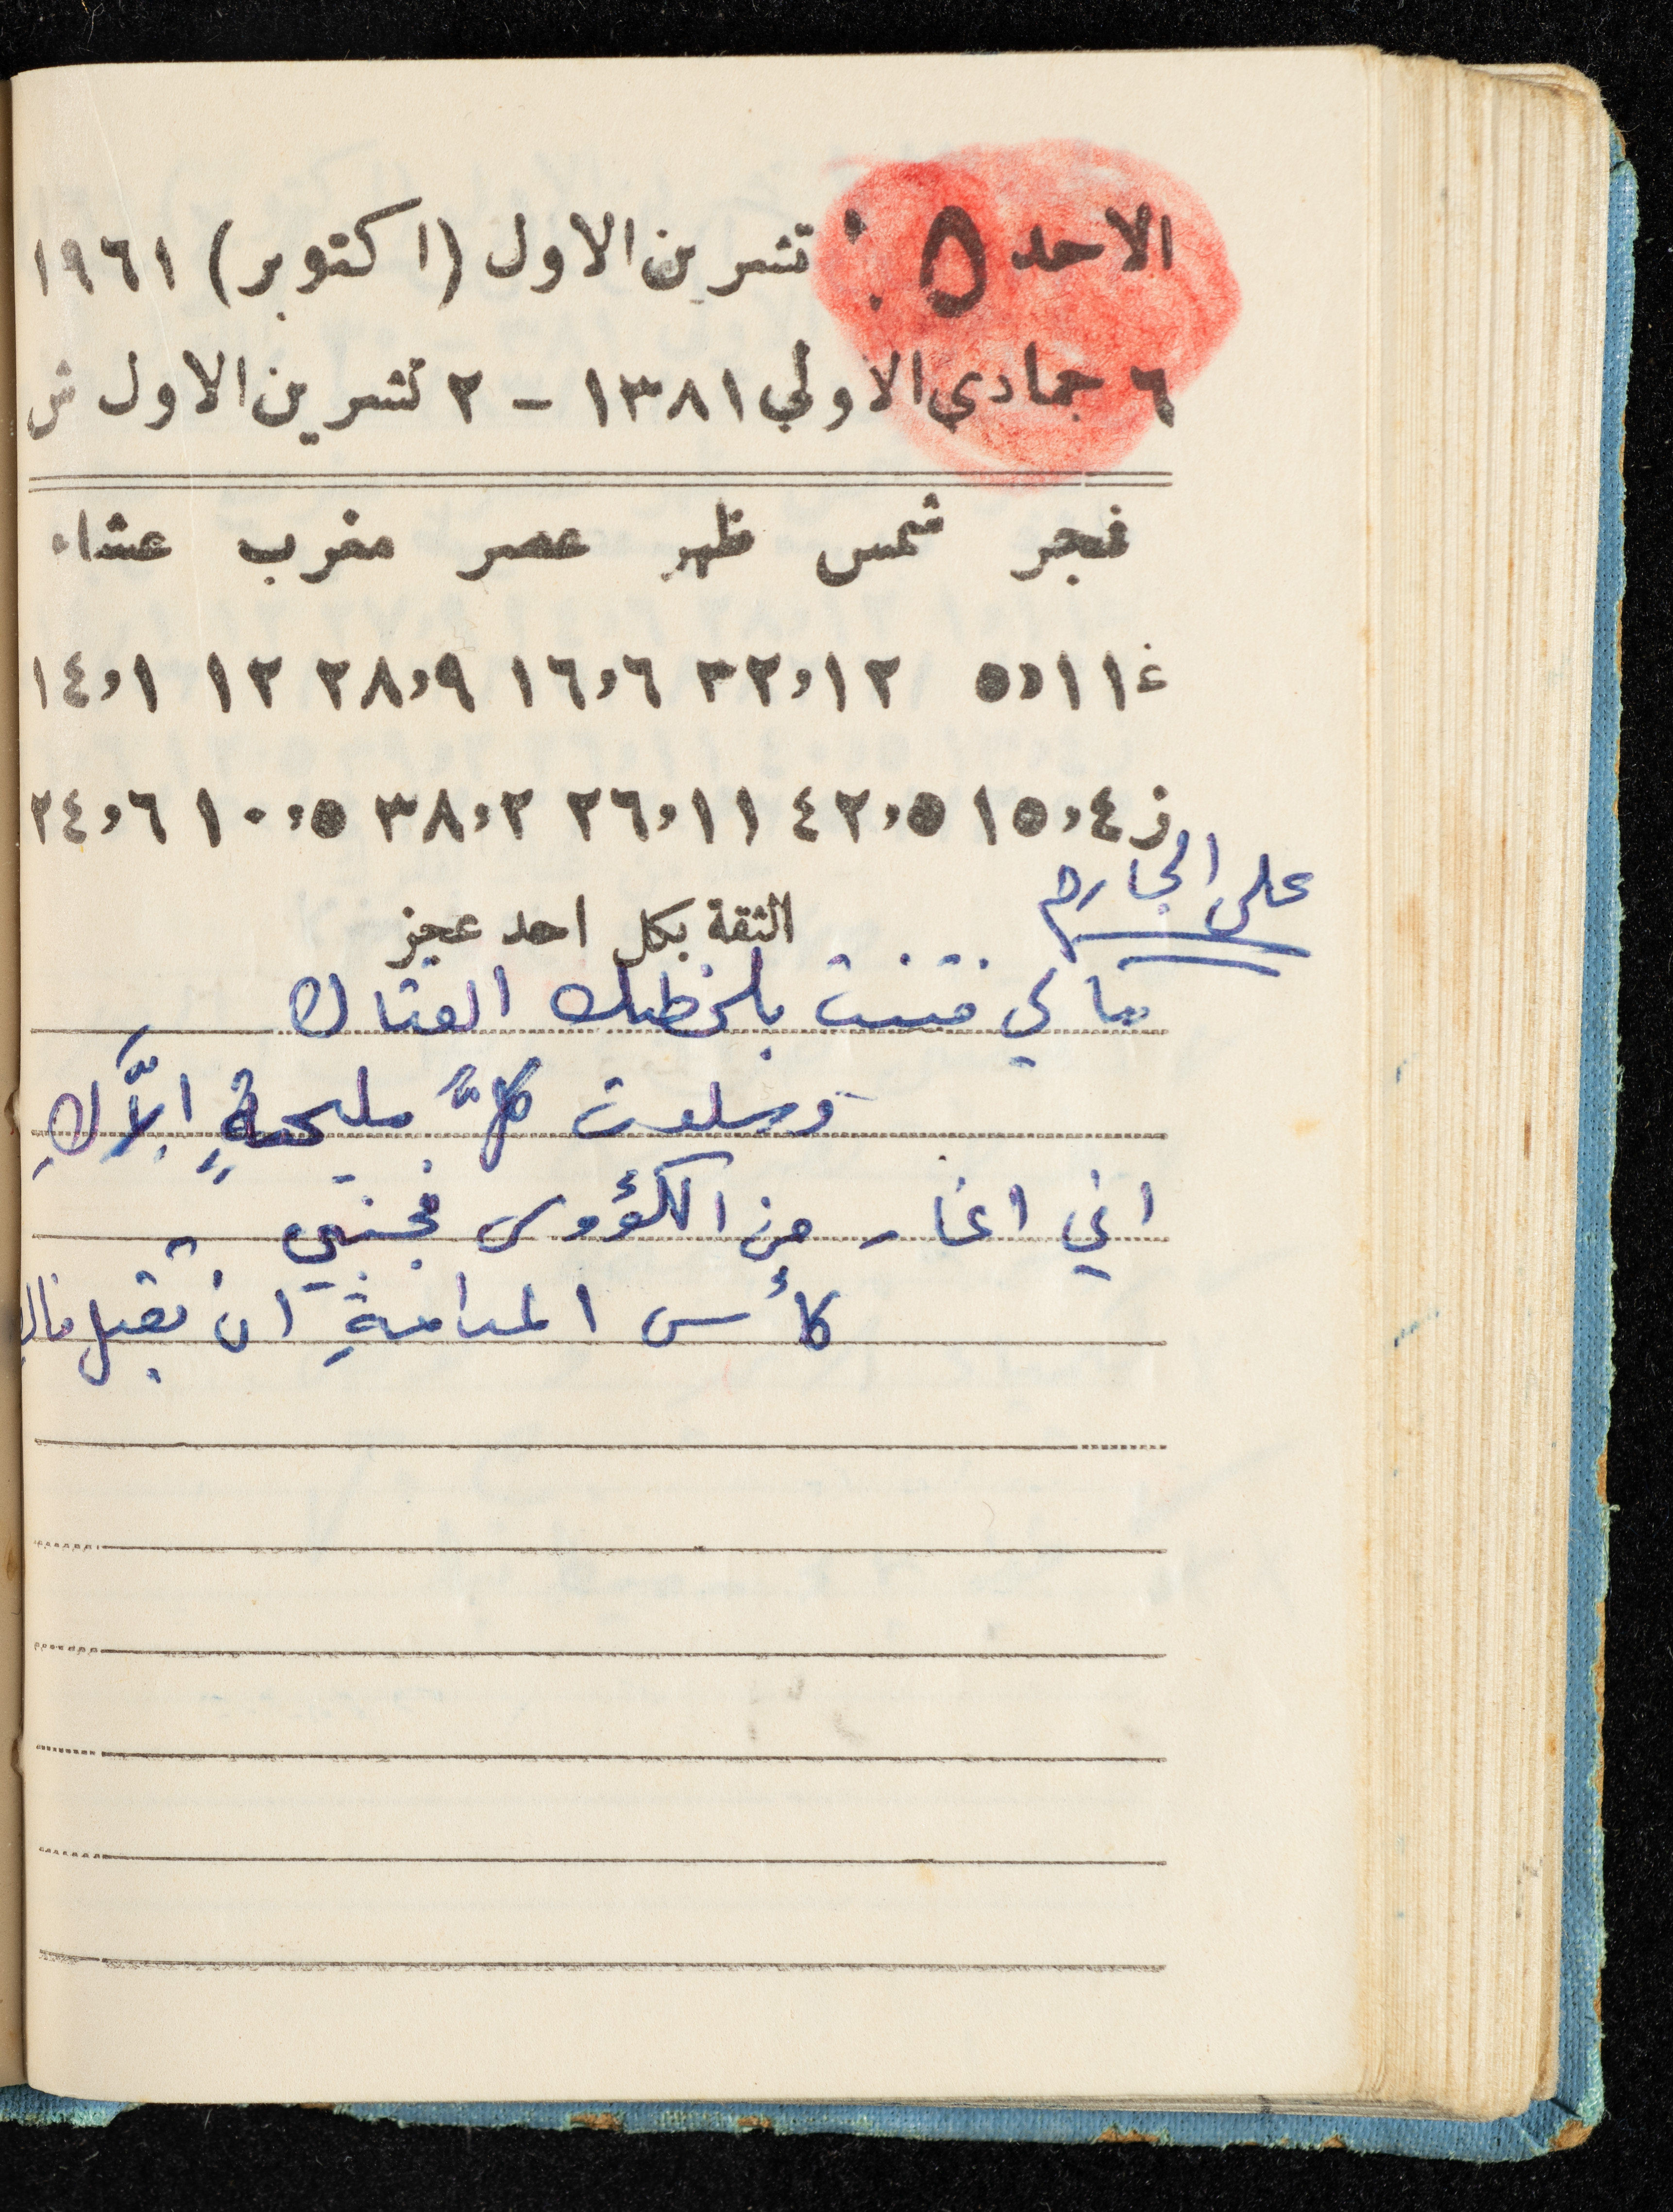 الاحد ١٥ تشرين الاول (اكتوبر) ١٩٦١
٦ جمادي الاولي ١٣٨١ – ٢ تشرين الاول ش
فجر شمس ظهر عصر مغرب عشاء
غ ١١،٥ ١٢،٣٢ ٦،١٦ ٩،٢٨ ١٢ ١،١٤
ز ٤،١٥ ٥،٤٢ ١١،٢٦ ٢،٣٨ ٥،١٠ ٦،٢٤
على الجارم
الثقة بكل احد عجز
مالي فتنت بلحظك الفتاك
وسلوت كلَّ مليحةٍ إلاَّكِ
اني اغار من الكؤوس فجنبي
كأس المدامةِ ان تقبل فاكِ